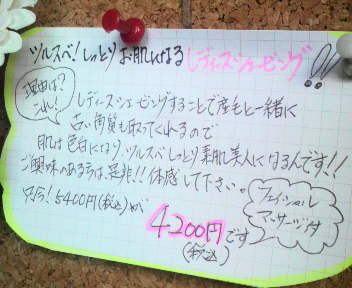 ツルスベ！しっとりお肌になるレディースシェービング!!
理由は？
これ！
レディースシェービングすることで産毛と一緒に
古い角質も取ってくれるので
肌は色白になり、ツルスベしっとり素肌美人になるんです!!
ご興味のある方は、是非!!体感して下さい。
只今！5400円(税込)が
4200円です
(税込)
フェイシャル
マッサージ付